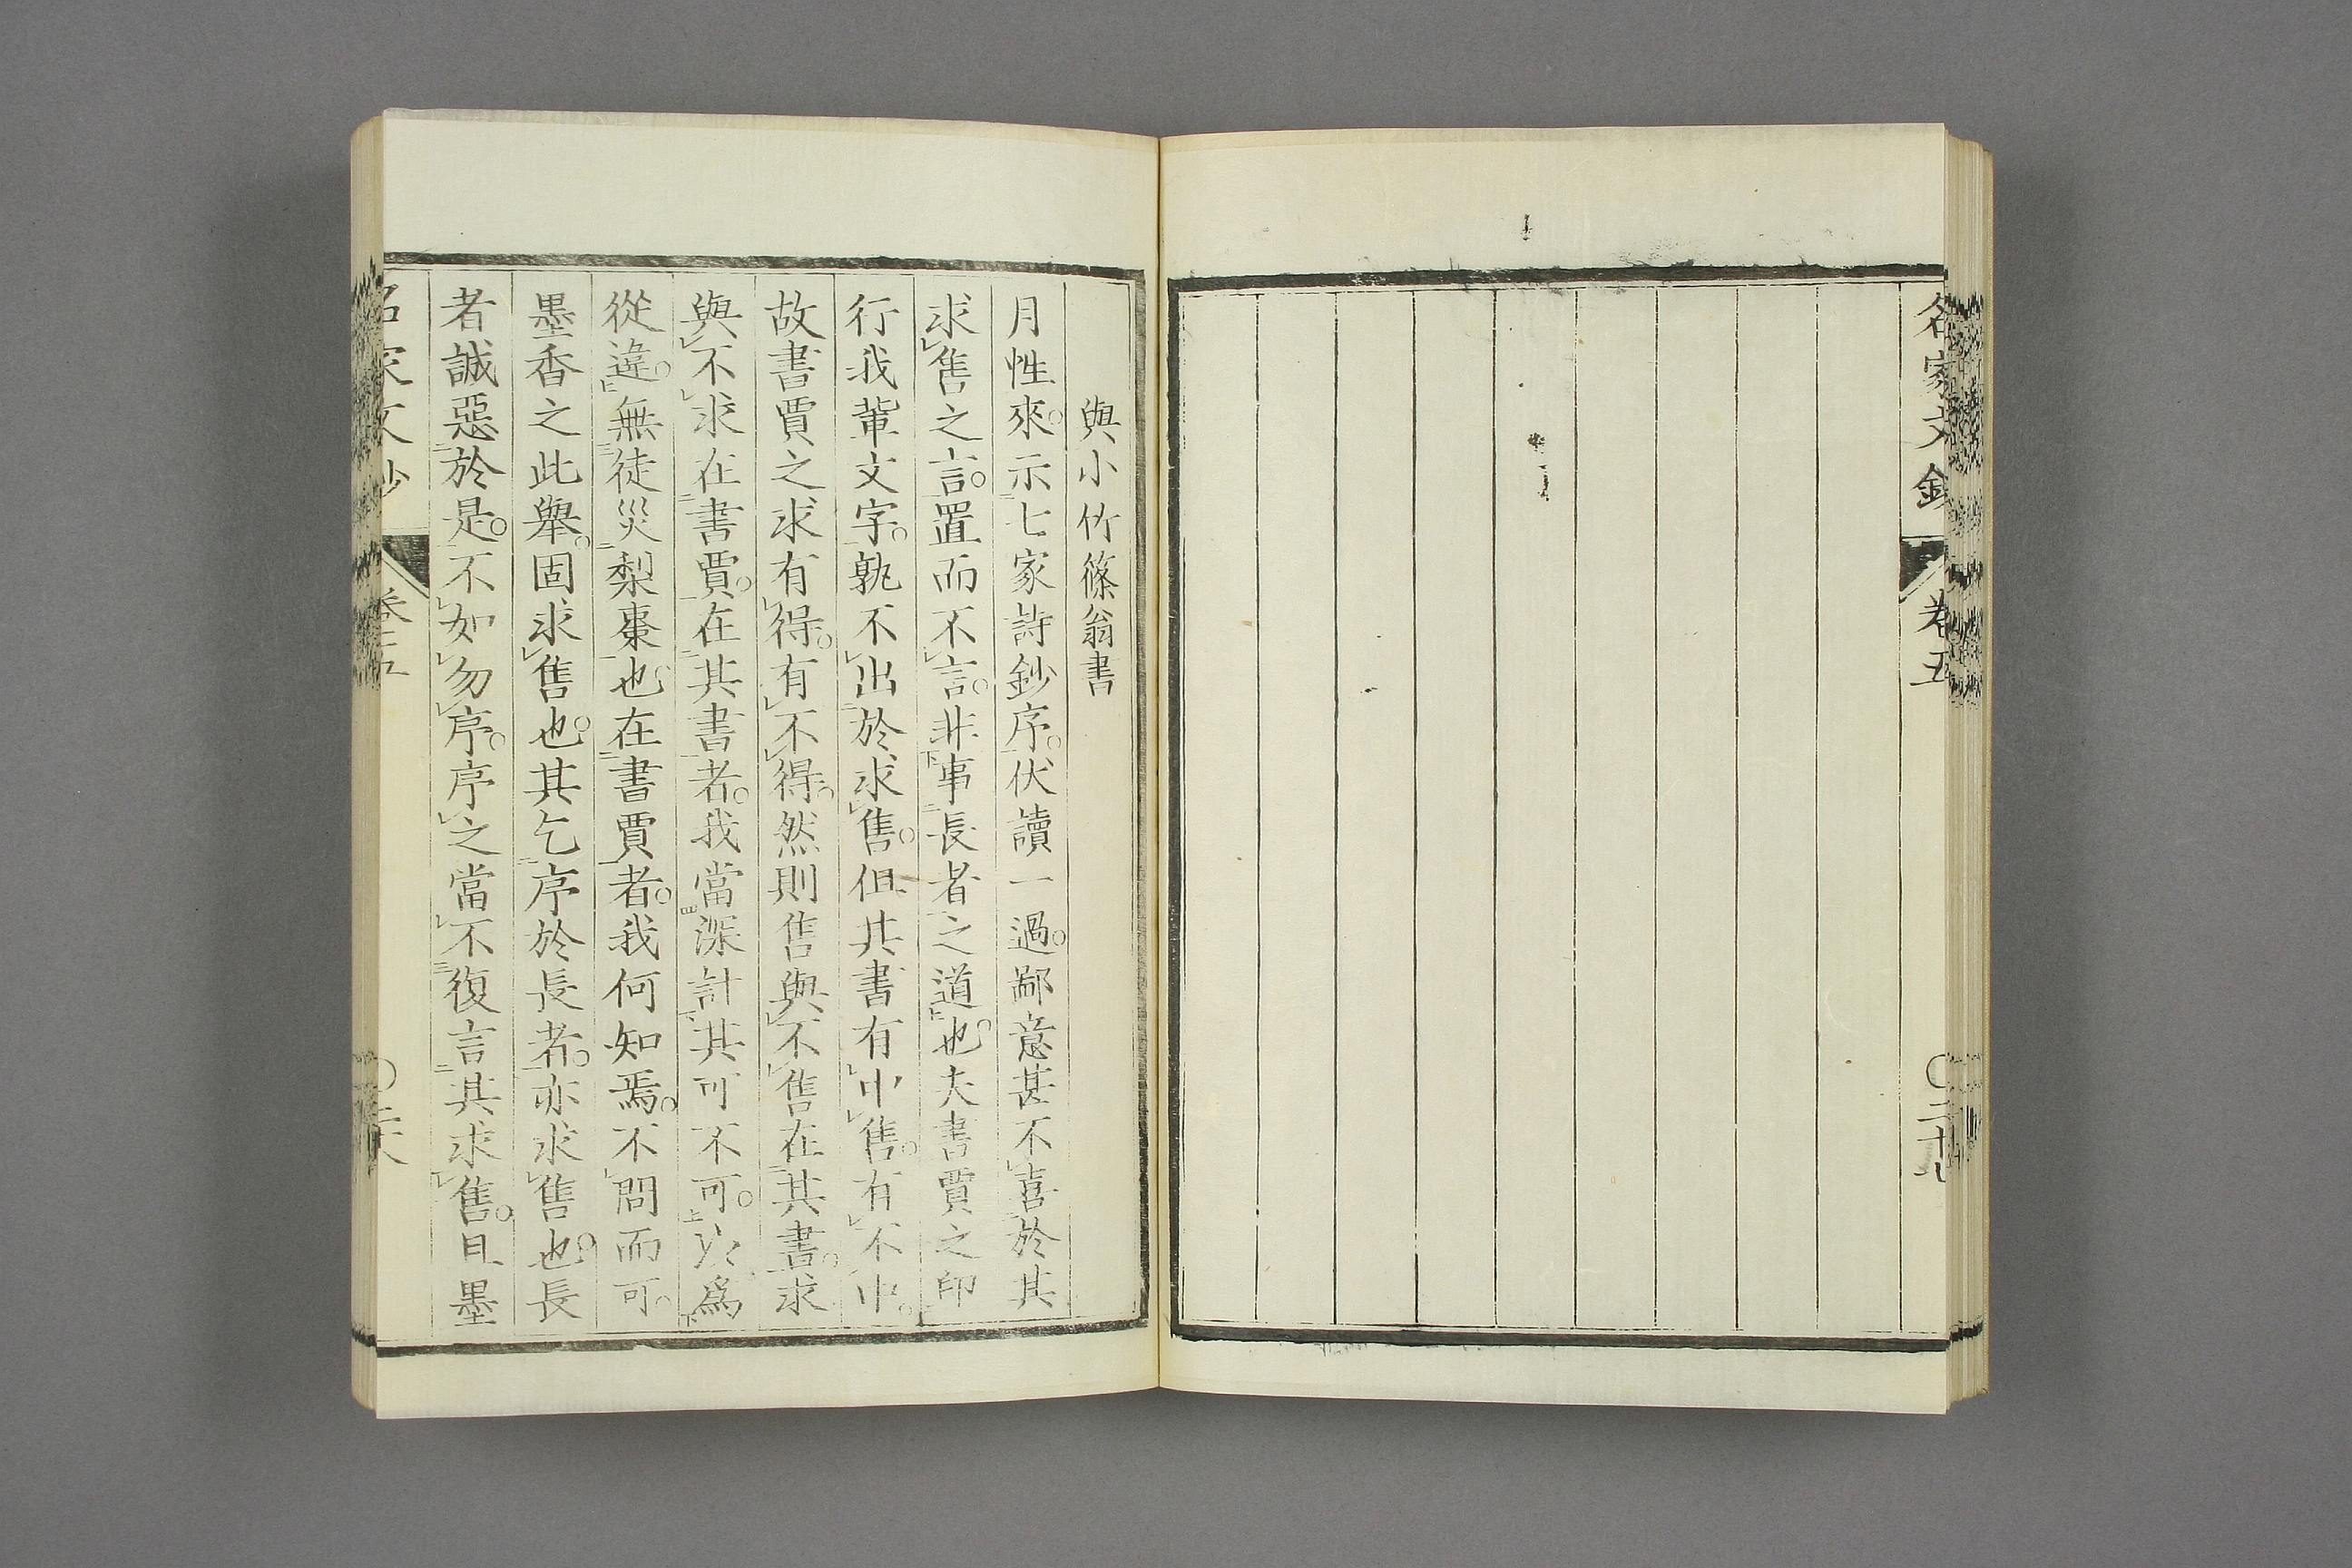 名家文鈔 卷五 〇二十七
與小竹篠翁書
月性來。示七家詩鈔序。伏讀一過。鄙意甚不喜於其
求售之言。置而不言。非事長者之道也。夫書賈之印
行我輩文字。孰不出於求售。但其書有中售。有不中。
故書賈之求有得。有不得。然則售與不售在其書。求
與不求在書賈。在其書者。我當深計其可不可。以爲
從違。無徒災梨棗也。在書賈者。我何知焉。不問而可。
墨香之此舉。固求售也。其乞序於長者。亦求售也。長
者誠惡於是。不如勿序。序之當不復言其求售。且墨
名家文鈔 卷五